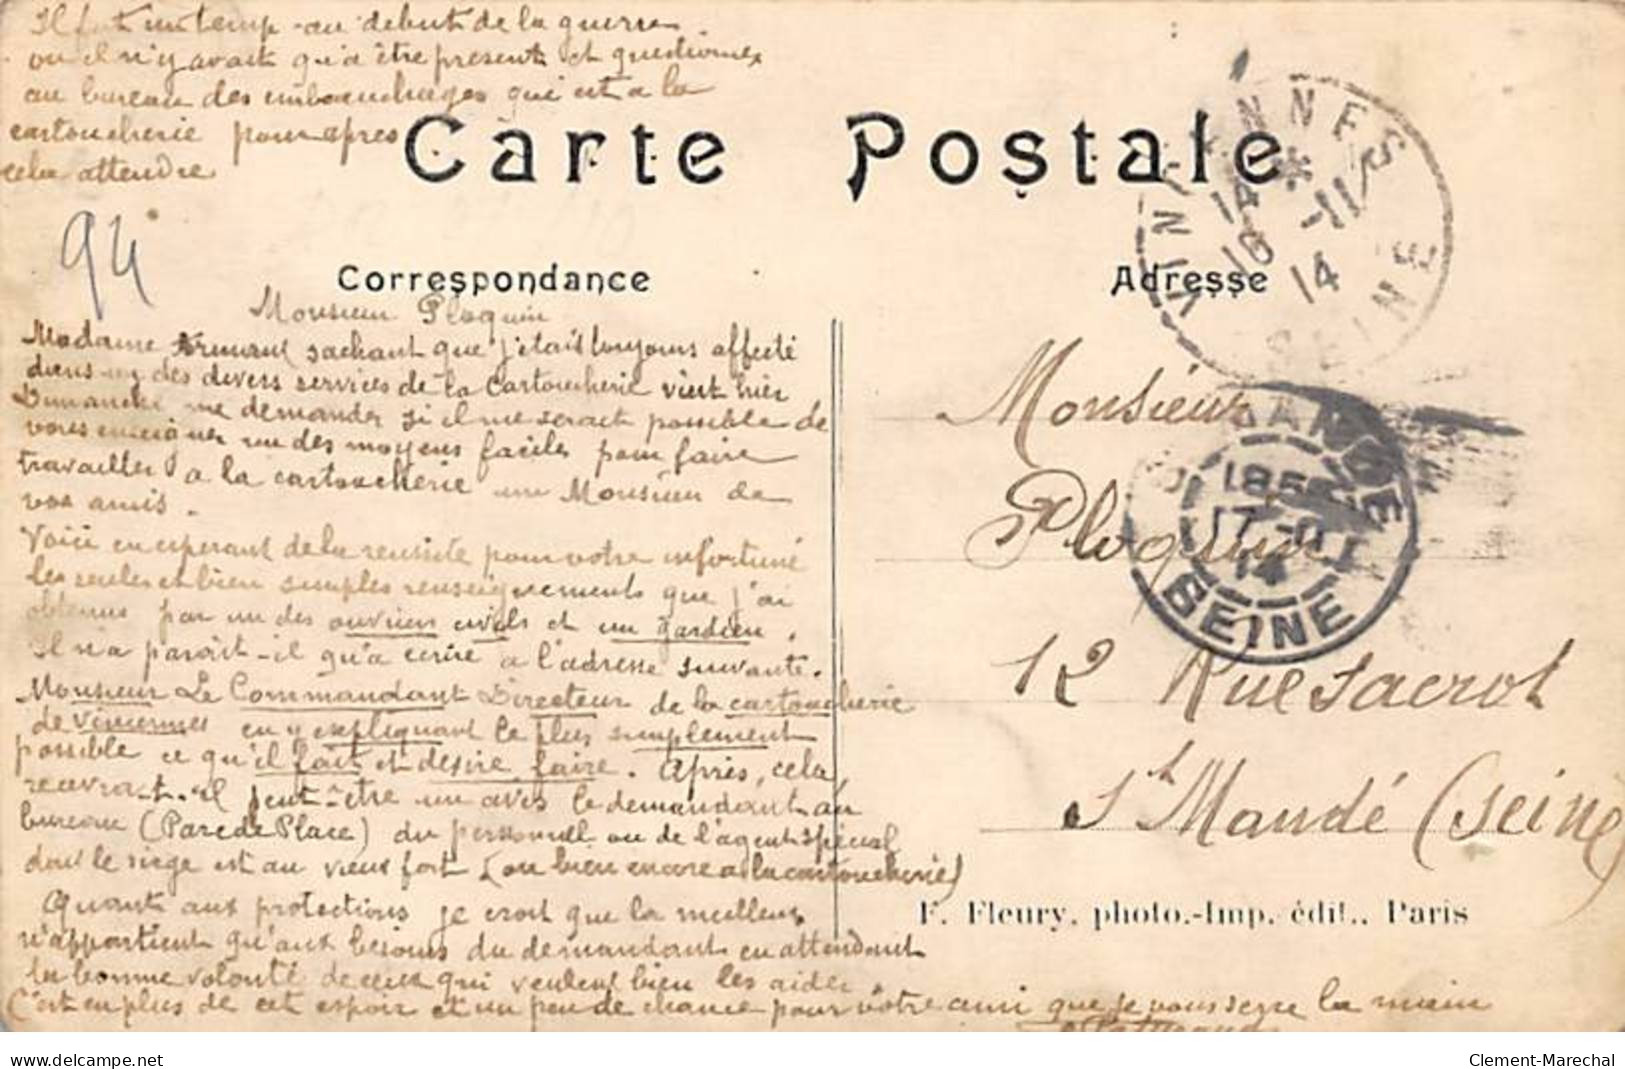 Il fut un temp au debut de la guerre
ou il n'y avait qu'a être present et questionner
au bureau des embauchages qui est a la
cartoucherie pour apres
cela attendre
94
Carte Postale
Correspondance
Adresse
VINCENNES
14 * -11
16 14
SEINE
Monsieur Ploquin
Madame sachant que j'étais toujours affecté
dans un des divers services de la Cartoucherie vient hier
Dimanche me demander si il me serait possible de
vous enseigner un des moyens faciles pour faire
travailler a la cartoucherie un Monsieur de
vos amis.
Voici en esperant de la reussite pour votre infortuné
les seules et bien simples renseignements que j'ai
obtenus par un des ouvriers civils et un gardien.
Il n'a parait-il qu'a ecrire a l'adresse suivante.
Monsieur Le Commandant Directeur de la cartoucherie
de Vincennes en y expliquant le plus simplement
possible ce qu'il fait et desire faire. Après, cela,
recevra-t-il peut-être un avis le demandant au
bureau (Parc de Place) du personnel ou de l'agent spécial
dont le siege est au vieux fort (ou bien encore a la cartoucherie)
Quant aux protections je croit que la meilleur
n'appartient qu'aux besoins du demandant en attendant
la bonne volonté de ceux qui veulent bien les aider.
C'est en plus de cet espoir et un peu de chance pour votre ami que je vous serre la main
Monsieur
Ploquin
12 Rue Sacrot
St Mandé (Seine)
MANDÉ
185
17-11
14
SEINE
F. Fleury, photo.-Imp. édit., Paris
www.delcampe.net
Clement-Marechal